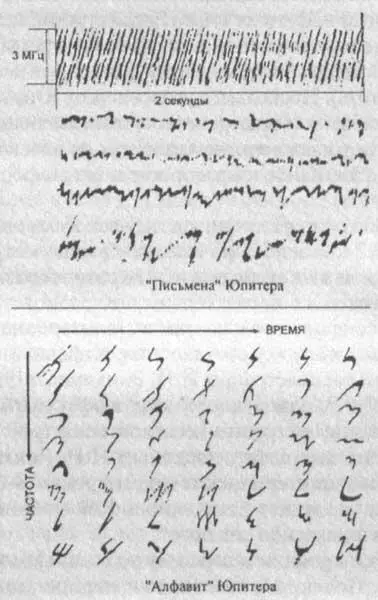 3 МГц
2 секунды
"Письмена" Юпитера
ВРЕМЯ
ЧАСТОТА
"Алфавит" Юпитера